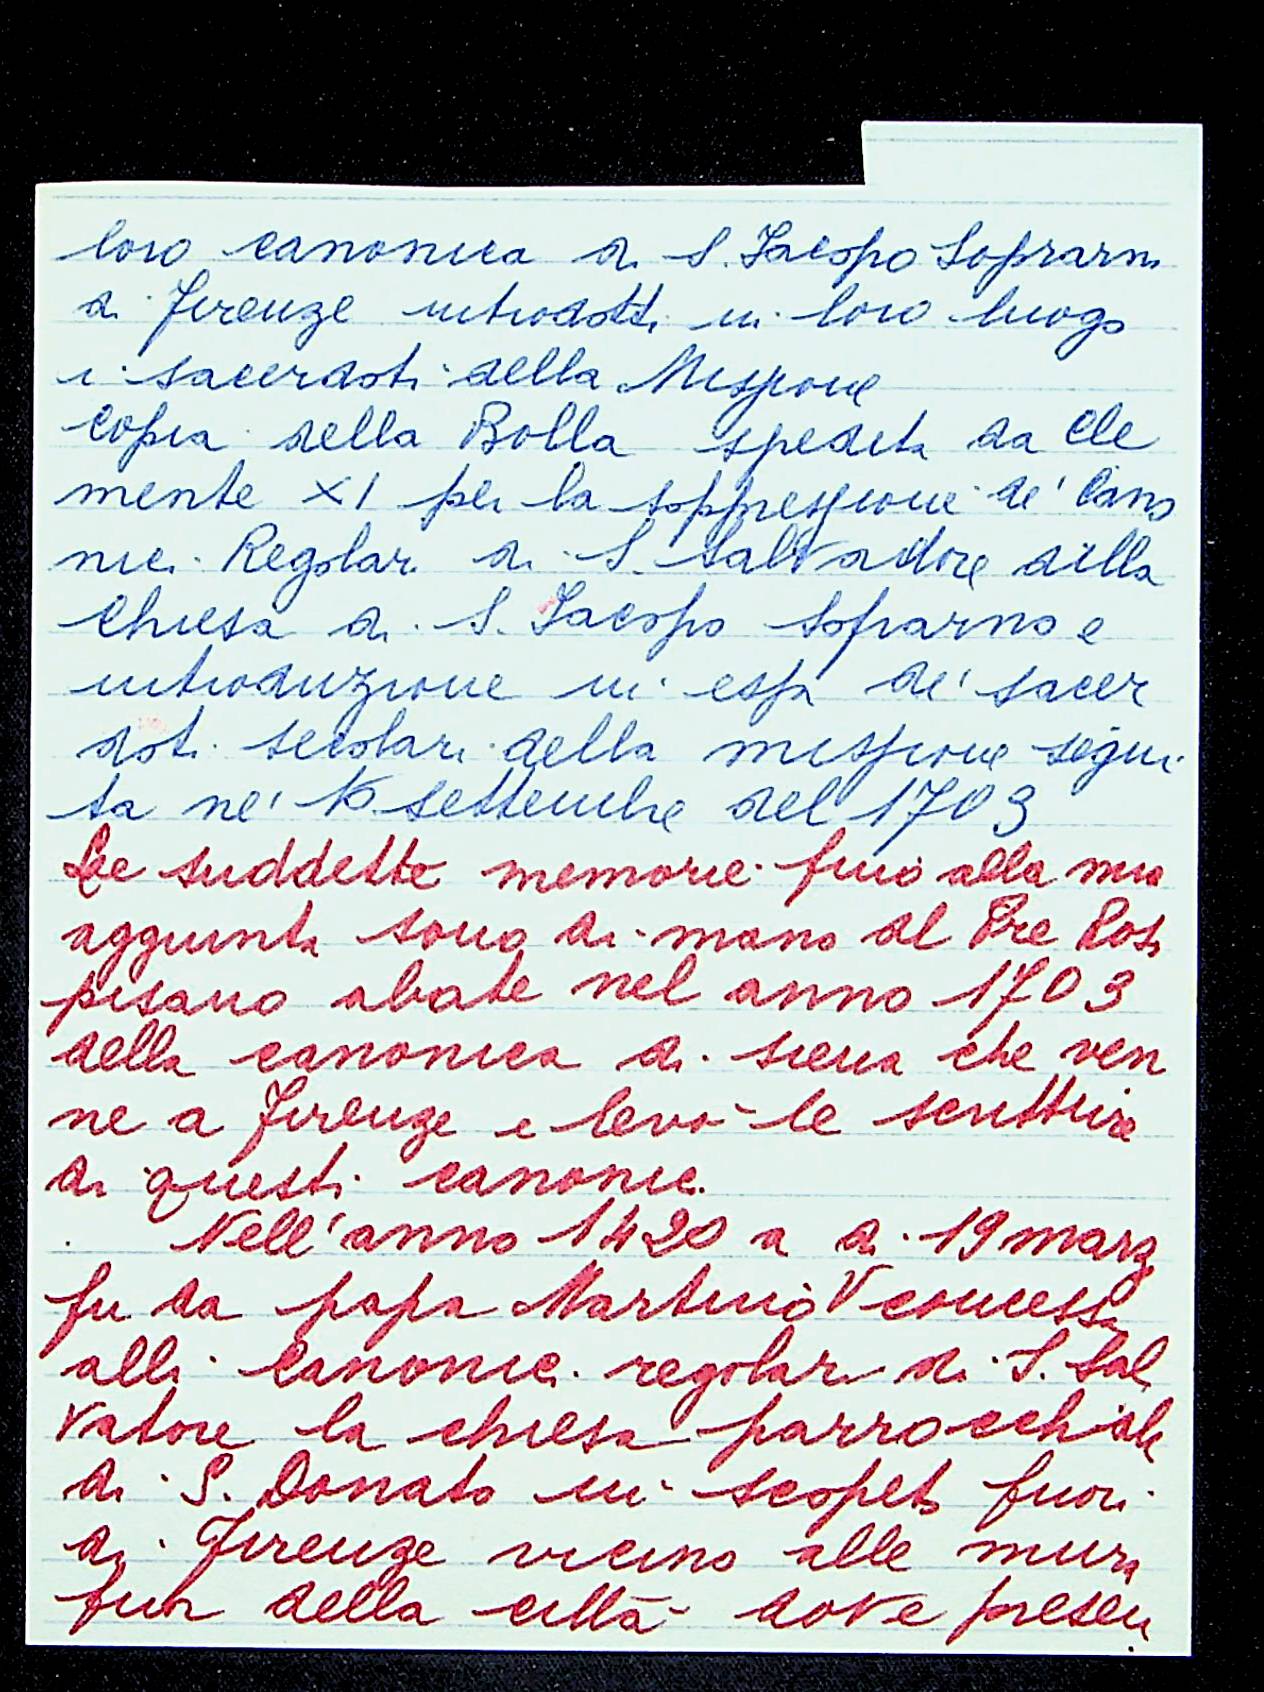 loro canonica di S. Iacopo Soprarn
di Firenze introdotti in loro luogo
i sacerdoti della Missione
Copia della Bolla spedita da Cle
mente XI per la soppressione de' Cano
nici Regolari di S. Salvadore dalla
Chiesa di S. Iacopo soprarno e
introduzione in essa de' sacer
doti secolari della missione segui
ta ne' settembre del 1703
Le suddette memorie fino alla mia
aggiunta sono di mano del Pre
pisano abate nel anno 1703
della canonica di siena che ven
ne a Firenze e levò le scritture
di questi canonici.
Nell'anno 1420 a di 19 marz
fu da papa Martino V concessa
alli Canonici regolari di S. Sal
vatore la chiesa parrocchiale
di S. Donato in scopeto fuori
di Firenze vicino alle mura
fuor della città dove presen